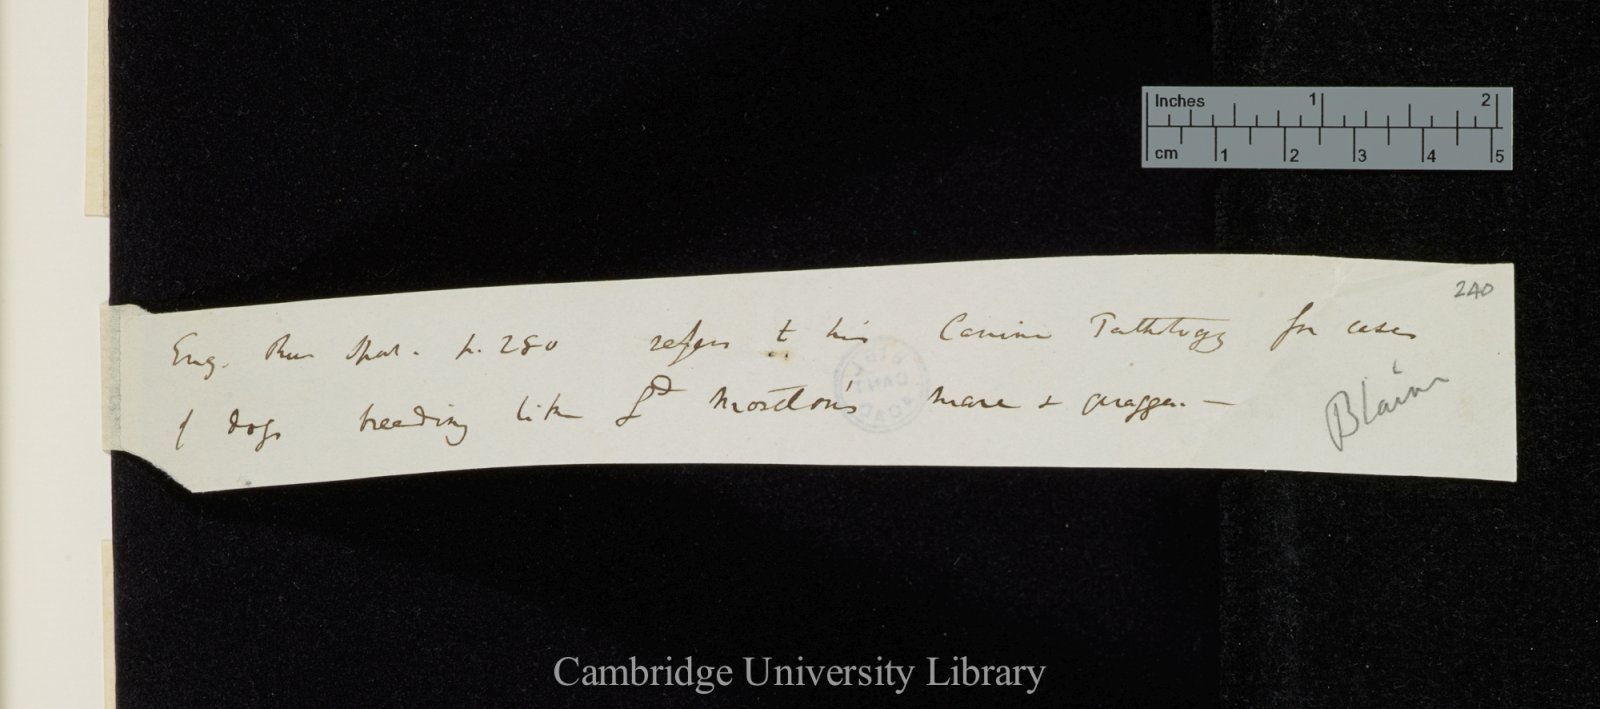 Inches 1 2
cm 1 2 3 4 5
240
Eng. Rur Spor. p. 280 refers to his Canine Pathology for cases
of dogs breeding like Ld Moreton's mare & quagga. —
Blaine
Cambridge University Library